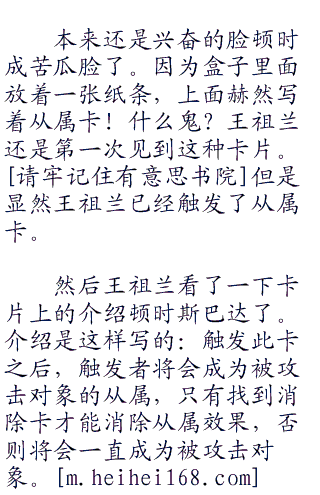 本来还是兴奋的脸顿时
成苦瓜脸了。因为盒子里面
放着一张纸条，上面赫然写
着从属卡！什么鬼？王祖兰
还是第一次见到这种卡片。
[请牢记住有意思书院]但是
显然王祖兰已经触发了从属
卡。
然后王祖兰看了一下卡
片上的介绍顿时斯巴达了。
介绍是这样写的：触发此卡
之后，触发者将会成为被攻
击对象的从属，只有找到消
除卡才能消除从属效果，否
则将会一直成为被攻击对
象。[m.heihei168.com]